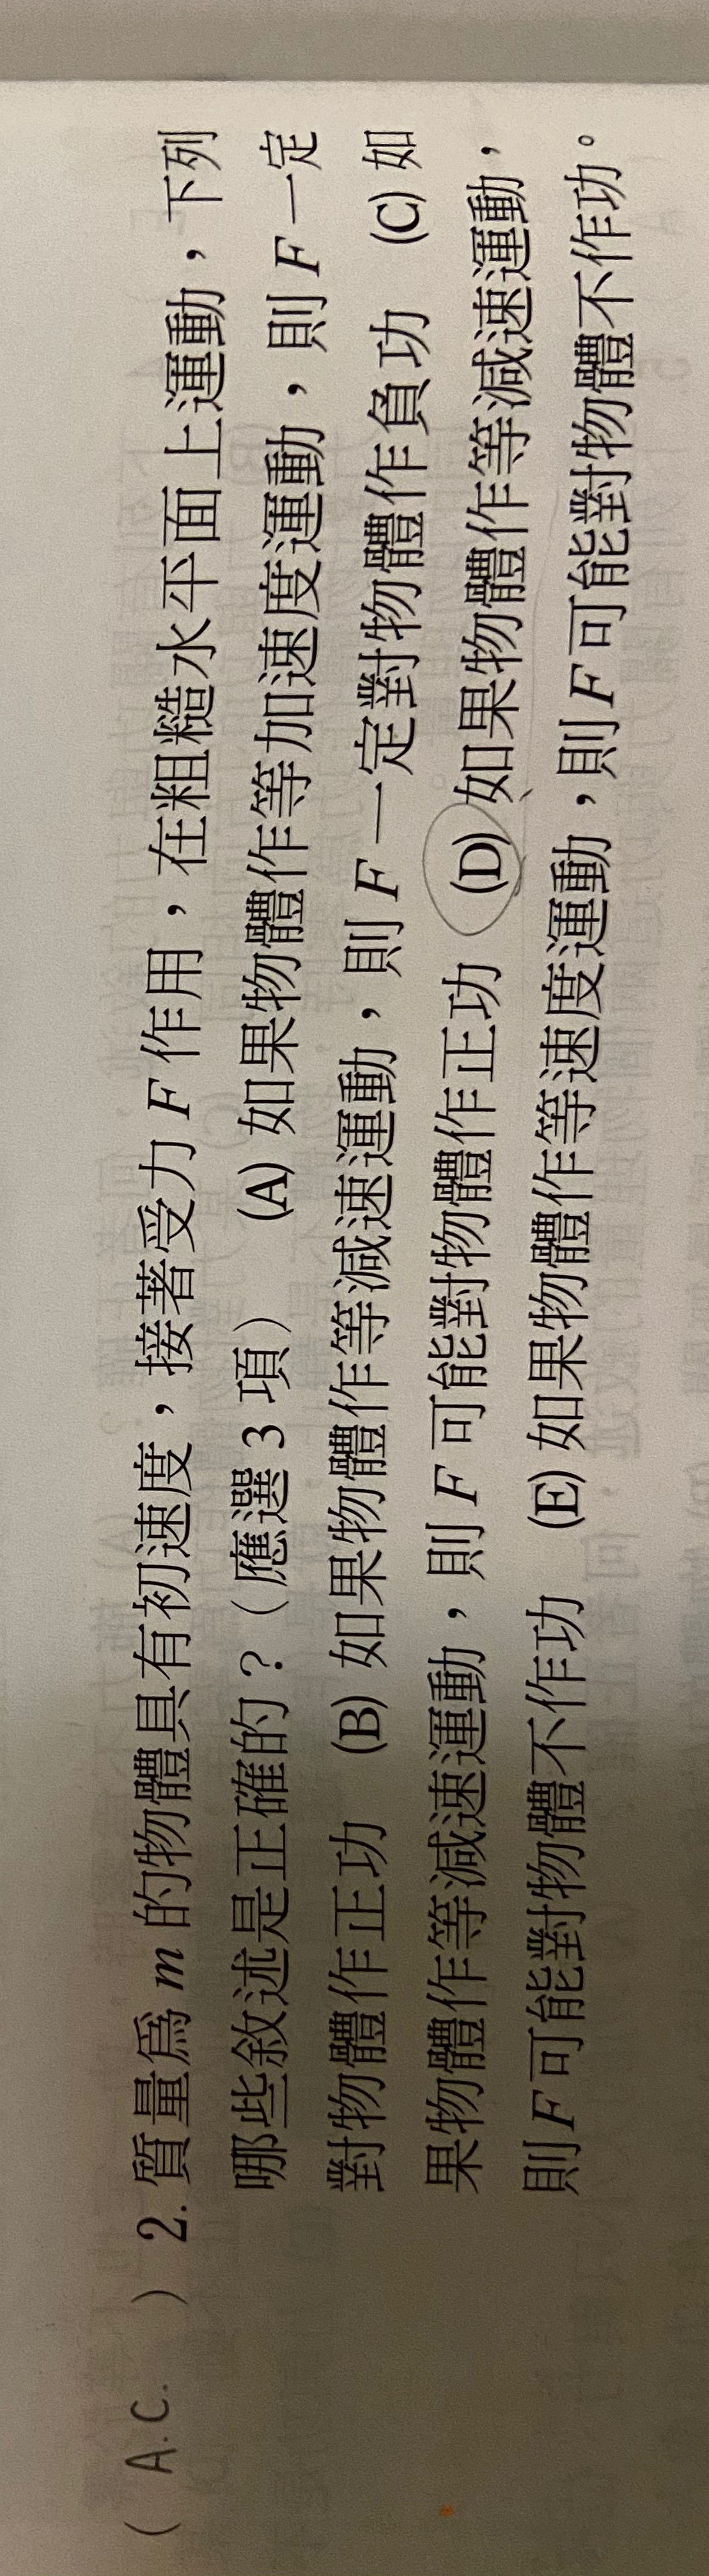 ( A.C. ) 2. 質量為 m 的物體具有初速度，接著受力 F 作用，在粗糙水平面上運動，下列
哪些敘述是正確的？（應選 3 項） (A) 如果物體作等加速度運動，則 F 一定
對物體作正功 (B) 如果物體作等減速運動，則 F 一定對物體作負功 (C) 如
果物體作等減速運動，則 F 可能對物體作正功 (D) 如果物體作等減速運動，
則 F 可能對物體不作功 (E) 如果物體作等速度運動，則 F 可能對物體不作功。